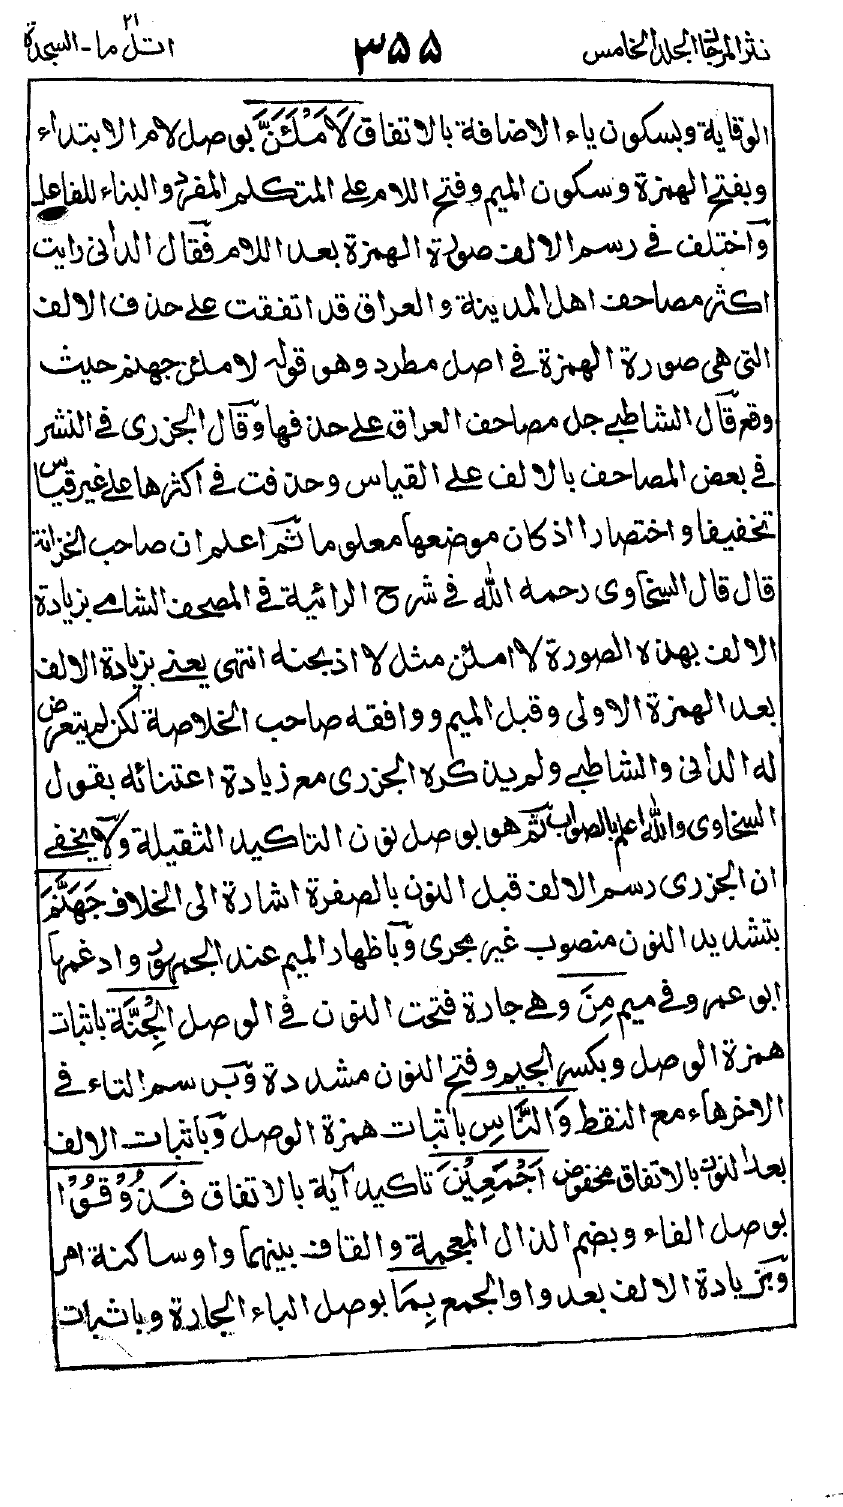 نثر المرجان المجلد الخامس ٣٥٥ اتل ما - السجدة ٢١
الوقاية وبسكون ياء الاضافة بالاتفاق لَاَمْلَئَنَّ بوصل لام الابتداء
وبفتح الهمزة وسكون الميم وفتح اللام على المتكلم المفرد والبناء للفاعل
واختلف في رسم الالف صورة الهمزة بعد اللام فقال الداني رايت
اكثر مصاحف اهل المدينة والعراق قد اتفقت على حذف الالف
التي هي صورة الهمزة في اصل مطرد وهو قوله لاملئن جهنم حيث
وقع وقال الشاطبي جل مصاحف العراق على حذفها وقال الجزري في النشر
في بعض المصاحف بالالف على القياس وحذفت في اكثرها على غير قياس
تخفيفا واختصارا اذ كان موضعها معلوما ثم اعلم ان صاحب الخزانة
قال قال السخاوي رحمه الله في شرح الرائية في المصحف الشامي بزيادة
الالف بهذه الصورة لا املئن مثل لا اذبحنه انتهى يعني بزيادة الالف
بعد الهمزة الاولى وقبل الميم ووافقه صاحب الخلاصة لكن لم يتعرض
له الداني والشاطبي ولم يذكره الجزري مع زيادة اعتنائه بقول
السخاوي والله اعلم بالصواب ثم هو بوصل نون التاكيد الثقيلة ولا يخفى
ان الجزري رسم الالف قبل النون بالصفرة اشارة الى الخلاف جَهَنَّمَ
بتشديد النون منصوب غير مجرى وباظهار الميم عند الجمهور وادغمها
ابو عمرو في ميم مِنَ وهي جارة فتحت النون في الوصل الْجِنَّةِ باثبات
همزة الوصل وبكسر الجيم وفتح النون مشددة وبرسم التاء في
الاخر هاء مع النقط وَالنَّاسِ باثبات همزة الوصل وباثبات الالف
بعد النون بالاتفاق مخفوض اَجْمَعِيْنَ تاكيد آية بالاتفاق فَذُوْقُوْا
بوصل الفاء وبضم الذال المعجمة والقاف بينهما واو ساكنة امر
وبزيادة الالف بعد واو الجمع بِمَا بوصل الباء الجارة وباثبات